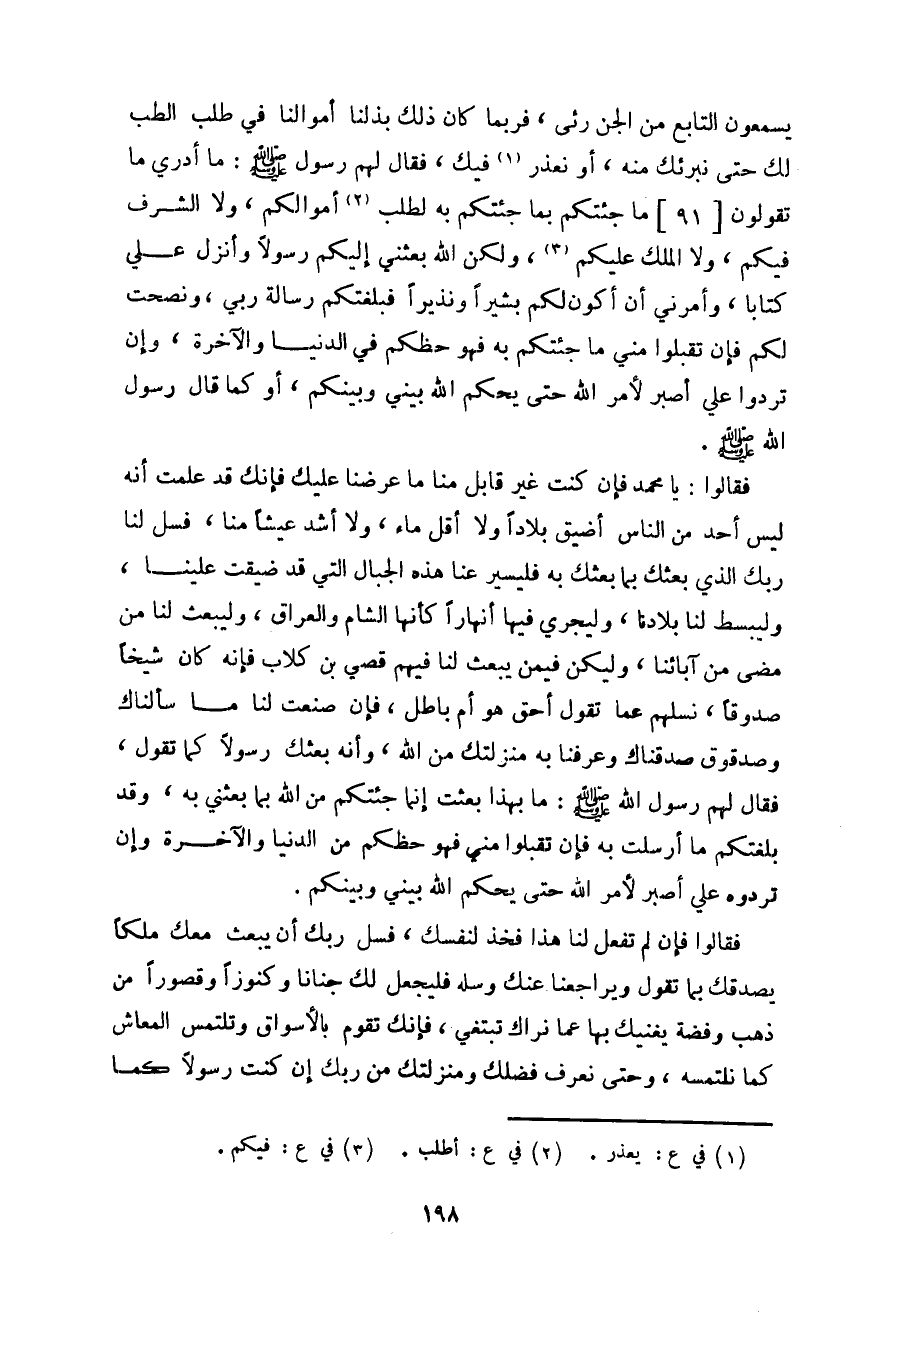 يسمعون التابع من الجن رئى ، فربما كان ذلك بذلنا أموالنا في طلب الطب
لك حتى نبرئك منه ، أو نعذر (١) فيك ، فقال لهم رسول ﷺ : ما أدري ما
تقولون [ ٩١ ] ما جئتكم بما جئتكم به لطلب (٢) أموالكم ، ولا الشرف
فيكم ، ولا الملك عليكم (٣) ، ولكن الله بعثني إليكم رسولاً وأنزل علي
كتابا ، وأمرني أن أكون لكم بشيراً ونذيراً فبلغتكم رسالة ربي ، ونصحت
لكم فإن تقبلوا مني ما جئتكم به فهو حظكم في الدنيا والآخرة ، وإن
تردوا علي أصبر لأمر الله حتى يحكم الله بيني وبينكم ، أو كما قال رسول
الله ﷺ .
فقالوا : يا محمد فإن كنت غير قابل منا ما عرضنا عليك فإنك قد علمت أنه
ليس أحد من الناس أضيق بلاداً ولا أقل ماء ، ولا أشد عيشاً منا ، فسل لنا
ربك الذي بعثك بما بعثك به فليسير عنا هذه الجبال التي قد ضيقت علينا ،
وليبسط لنا بلادنا ، وليجري فيها أنهاراً كأنها الشام والعراق ، وليبعث لنا من
مضى من آبائنا ، وليكن فيمن يبعث لنا فيهم قصي بن كلاب فإنه كان شيخاً
صدوقاً ، نسلهم عما تقول أحق هو أم باطل ، فإن صنعت لنا ما سألناك
وصدقوق صدقناك وعرفنا به منزلتك من الله ، وأنه بعثك رسولاً كما تقول ،
فقال لهم رسول الله ﷺ : ما بهذا بعثت إنما جئتكم من الله بما بعثني به ، وقد
بلغتكم ما أرسلت به فإن تقبلوا مني فهو حظكم من الدنيا والآخرة وإن
تردوه علي أصبر لأمر الله حتى يحكم الله بيني وبينكم .
فقالوا فإن لم تفعل لنا هذا فخذ لنفسك ، فسل ربك أن يبعث معك ملكاً
يصدقك بما تقول ويراجعنا عنك وسله فليجعل لك جنانا وكنوزاً وقصوراً من
ذهب وفضة يغنيك بها عما نراك تبتغي ، فإنك تقوم بالأسواق وتلتمس المعاش
كما نلتمسه ، وحتى نعرف فضلك ومنزلتك من ربك إن كنت رسولاً كما
(١) في ع : يعذر . (٢) في ع : أطلب . (٣) في ع : فيكم .
١٩٨